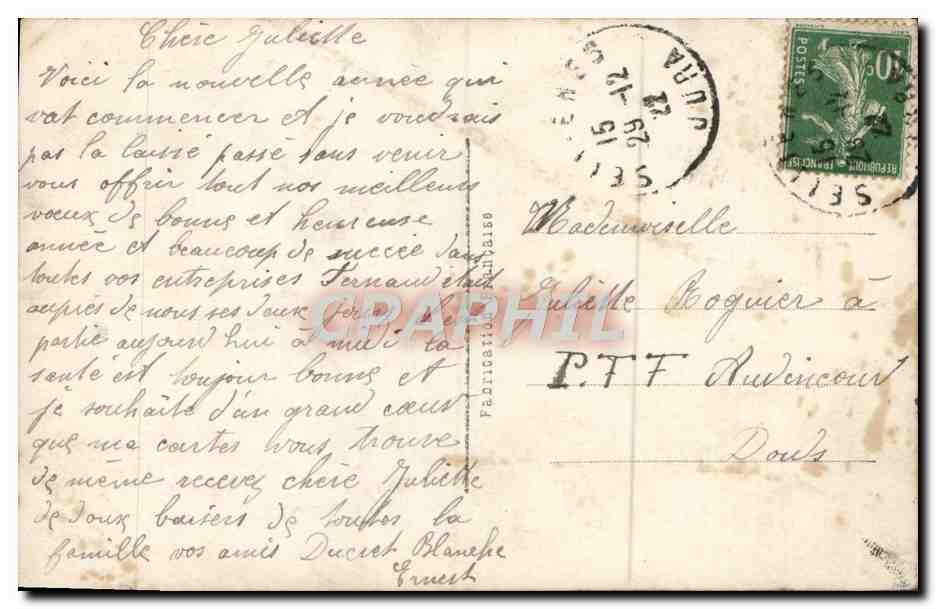 Chère Juliette
Voici la nouvelle année qui
vat commencer et je voudrais
pas la laissé passé sans venir
vous offrir tout nos meilleurs
vœux de bonne et heureuse
année et beaucoup de succée dans
toutes vos entreprises Fernand était
auprès de nous ses deux
partie aujourd hui à midi la
santé est toujour bonne et
je souhaite d'un grand cœur
que ma cartes vous trouve
de même recevez chère Juliette
de doux baisers de toutes la
famille vos amis Ducret Blanche
Ernest
Fabrication Française
CPAPHIL
15
29-12
22
JURA
10c
POSTES
REPUBLIQUE FRANÇAISE
Mademoiselle
Juliette Roguier à
P.T.T Audincourt
Doubs